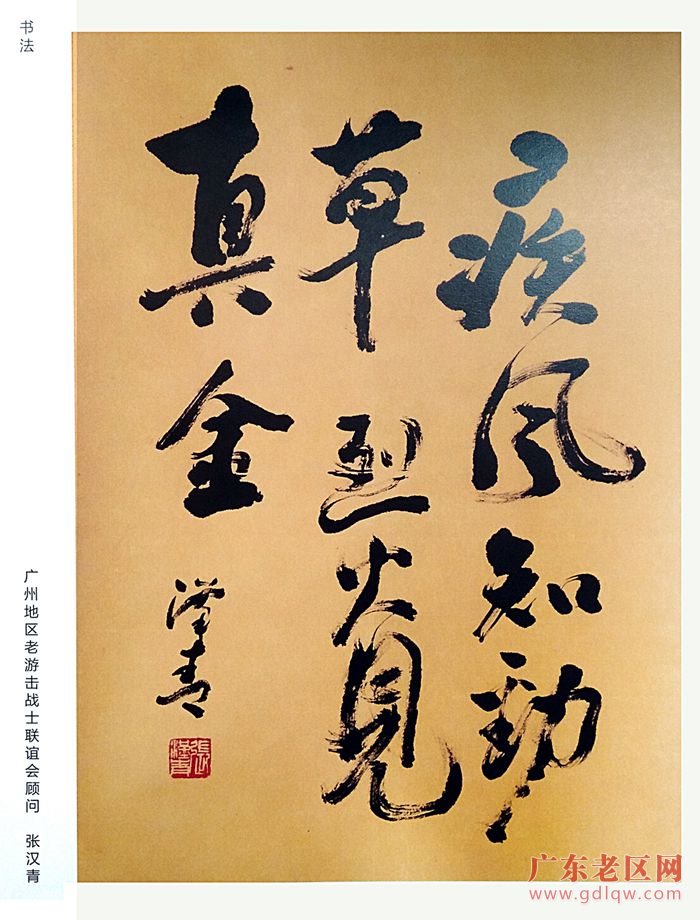 书法
疾风知劲
草烈火見
真金
漢青
張漢青
广州地区老游击战士联谊会顾问 张汉青
广东老区网
www.gdlqw.com